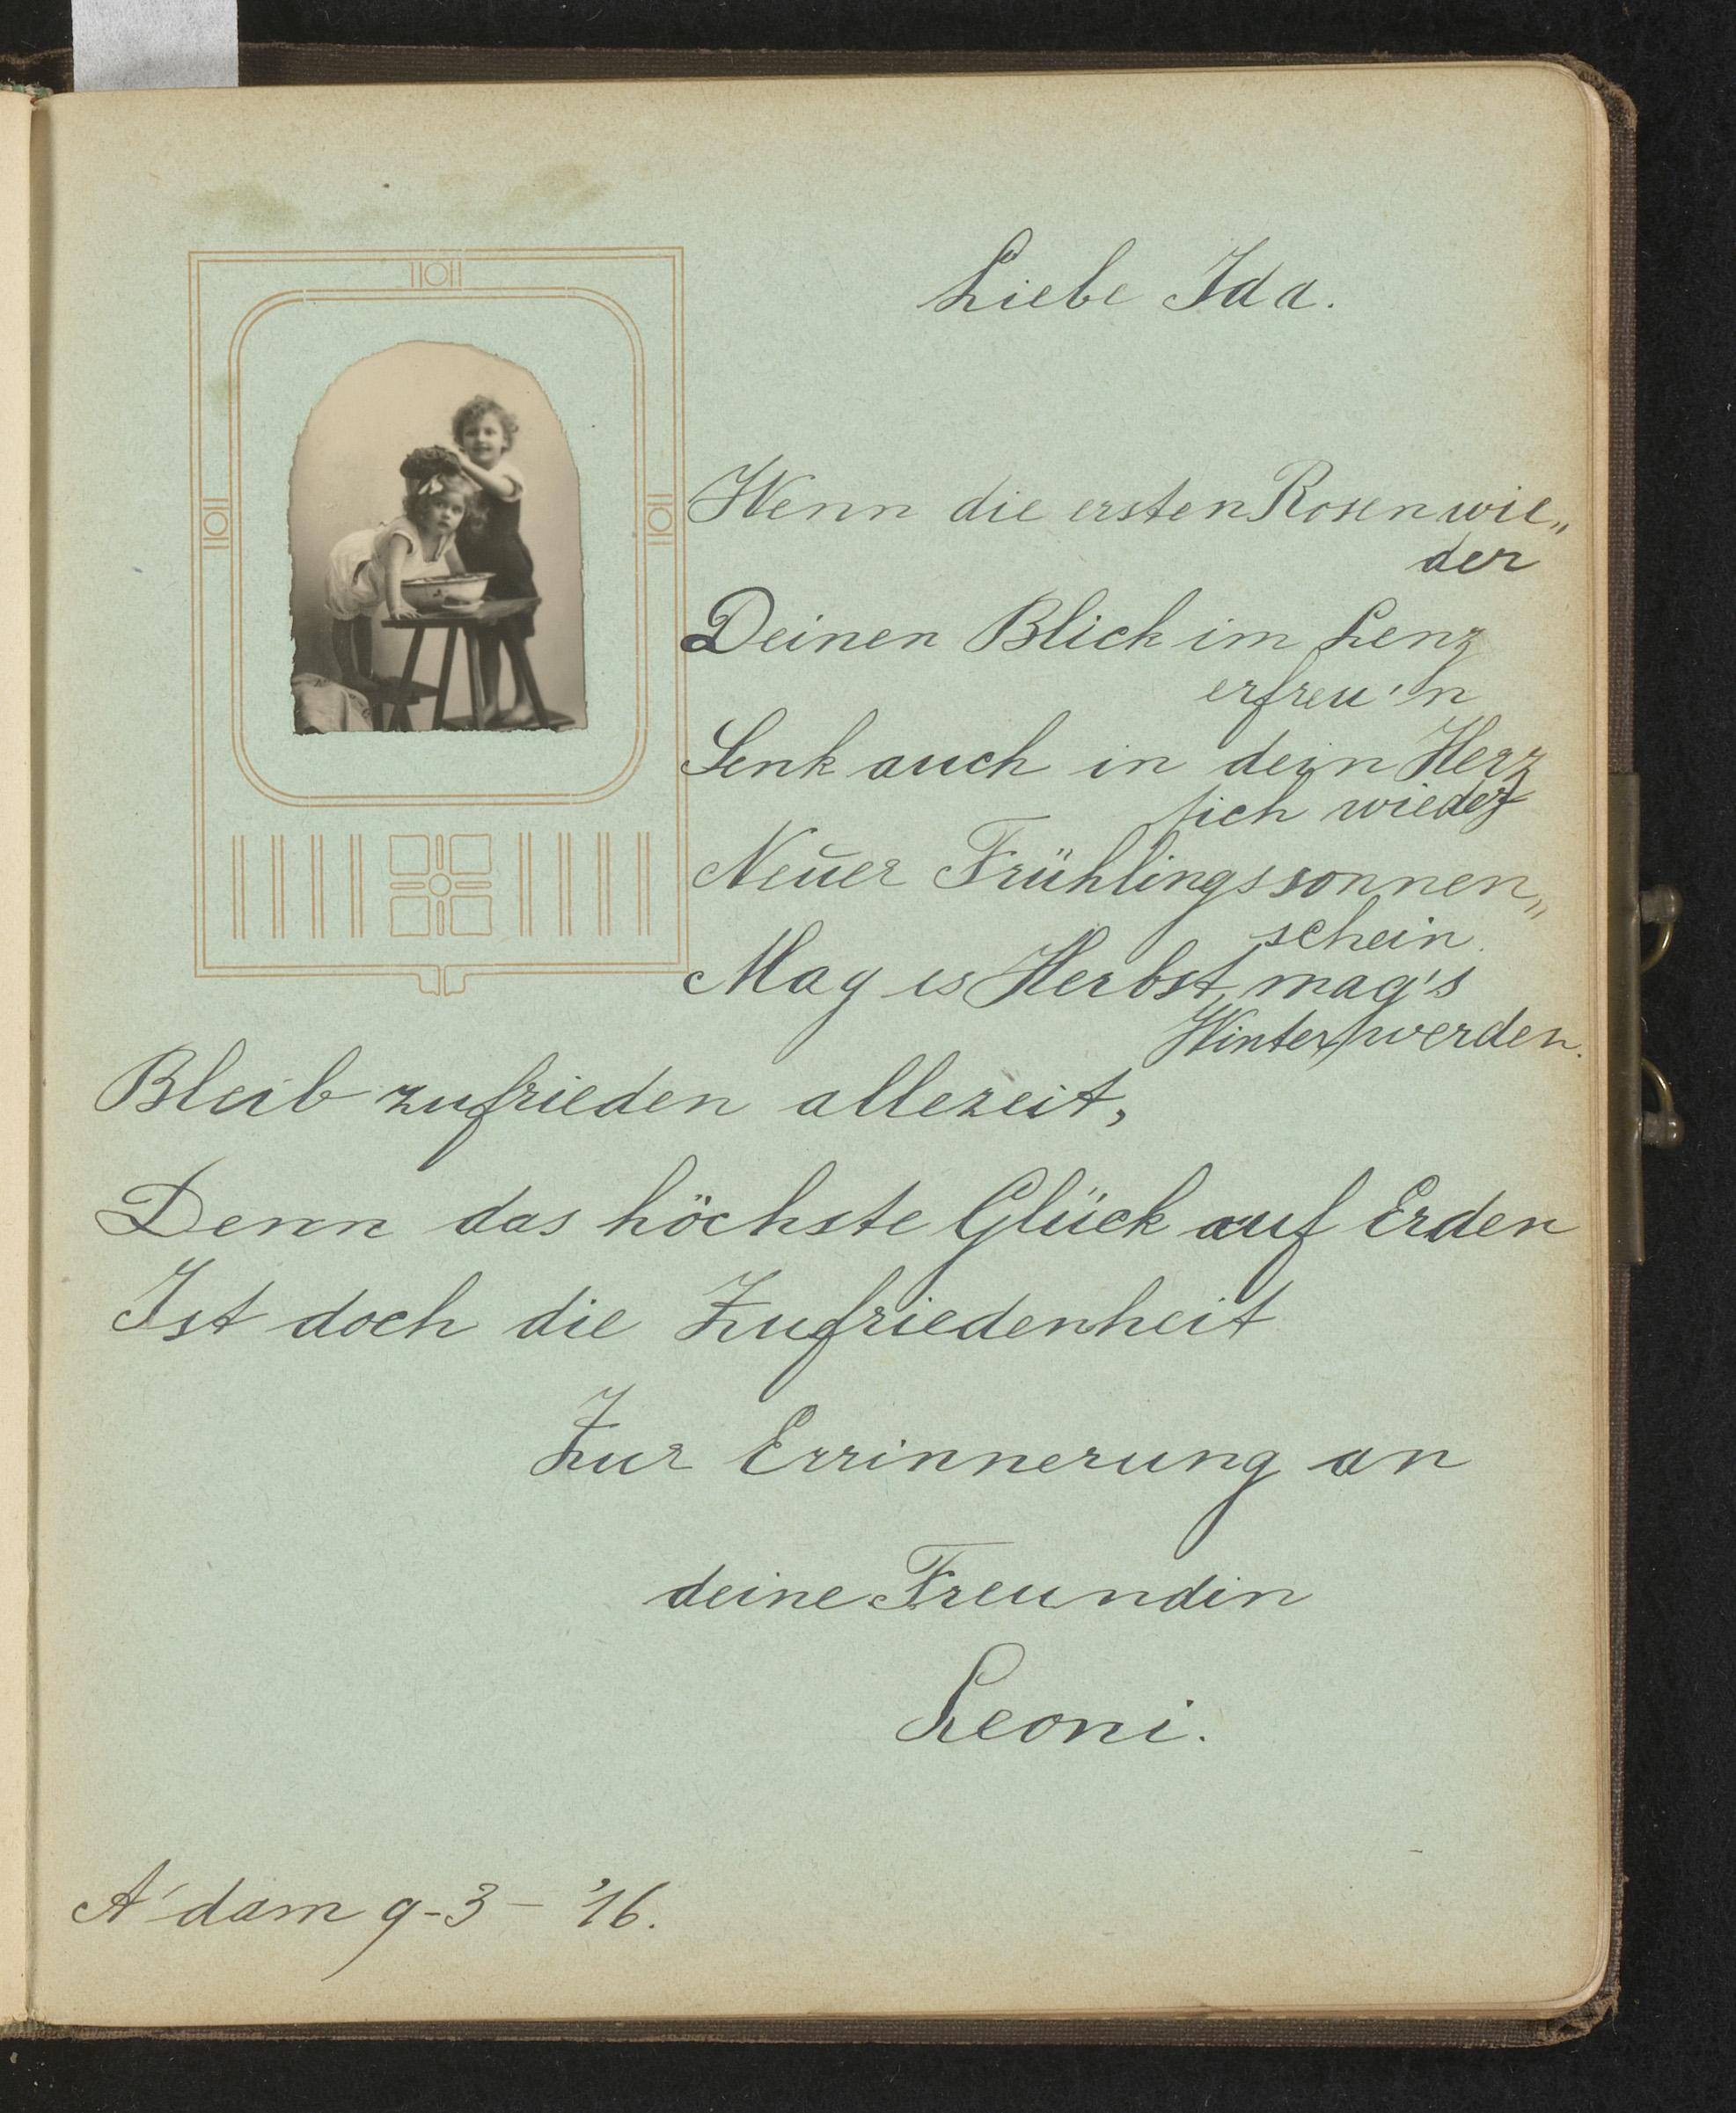 Liebe Ida.
Wenn die ersten Rosen wie„
der
Deinen Blick im Lenz
erfreu'n
Senk auch in dein Herz
sich wieder
Neŭer Frühlingssonnen„
schein.
Mag es Herbst, mag's
Winter werden.
Bleib zufrieden allezeit,
Denn das höchste Glück auf Erden
Ist doch die Zufriedenheit
Zur Errinnerung an
deine Freundin
Leoni.
A'dam 9-3-'16.